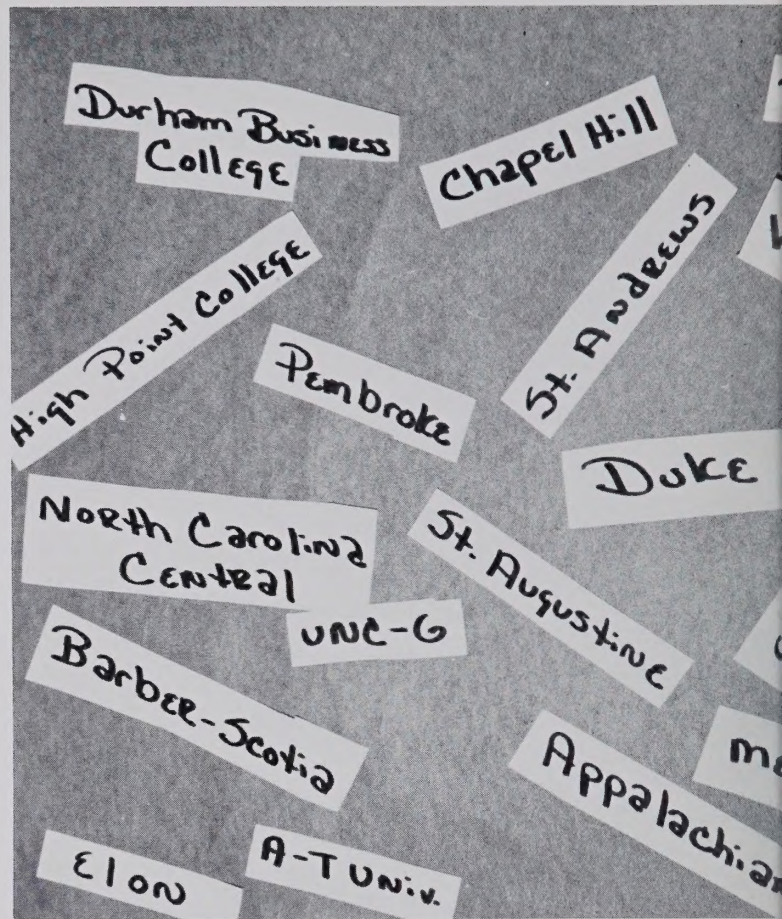 Durham Business
College
Chapel Hill
St. Andrews
High Point College
Pembroke
Duke
North Carolina
Central
St. Augustine
UNC-G
Barber-Scotia
Appalachian
Elon
A-T Univ.